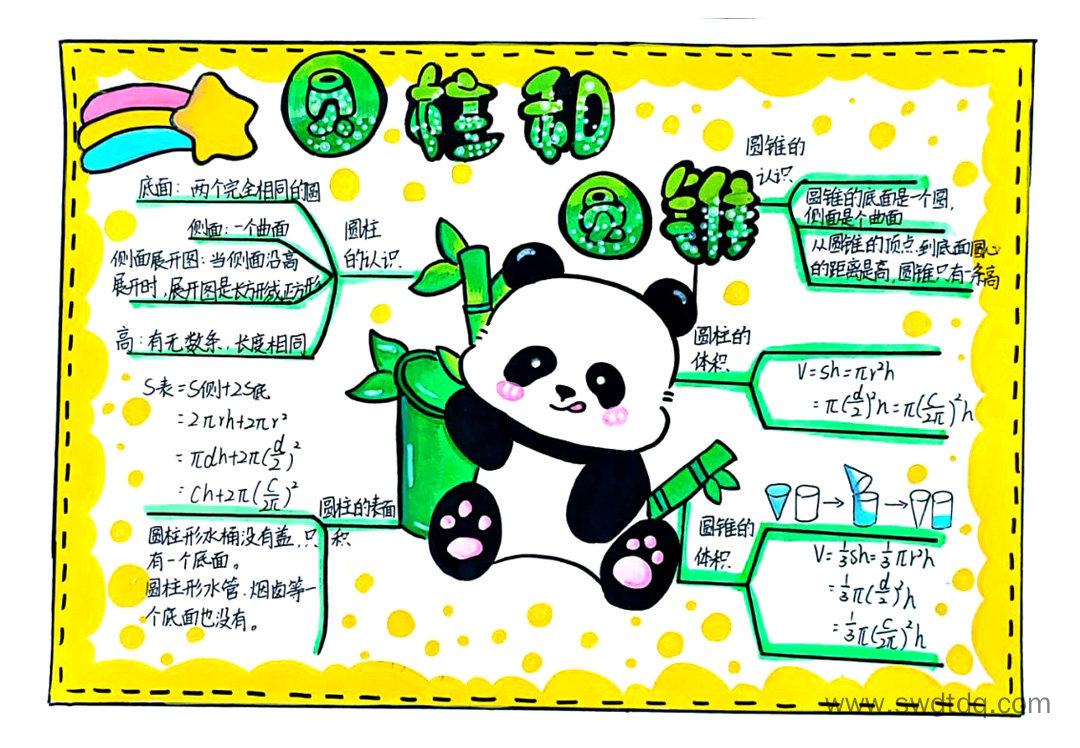 圆柱和
圆锥
底面：两个完全相同的圆
侧面：一个曲面
侧面展开图：当侧面沿高
展开时，展开图是长方形或正方形
高：有无数条，长度相同
圆柱
的认识
S表=S侧+2S底
=2πrh+2πr²
=πdh+2π(d/2)²
=Ch+2π(C/2π)²
圆柱的表面
积
圆柱形水桶没有盖，只
有一个底面。
圆柱形水管、烟囱等一
个底面也没有。
圆锥的
认识
圆锥的底面是一个圆，
侧面是个曲面
从圆锥的顶点到底面圆心
的距离是高，圆锥只有一条高
圆柱的
体积
V=Sh=πr²h
=π(d/2)²h=π(C/2π)²h
圆锥的
体积
V=1/3Sh=1/3πr²h
=1/3π(d/2)²h
=1/3π(C/2π)²h
www.swdtdq.com